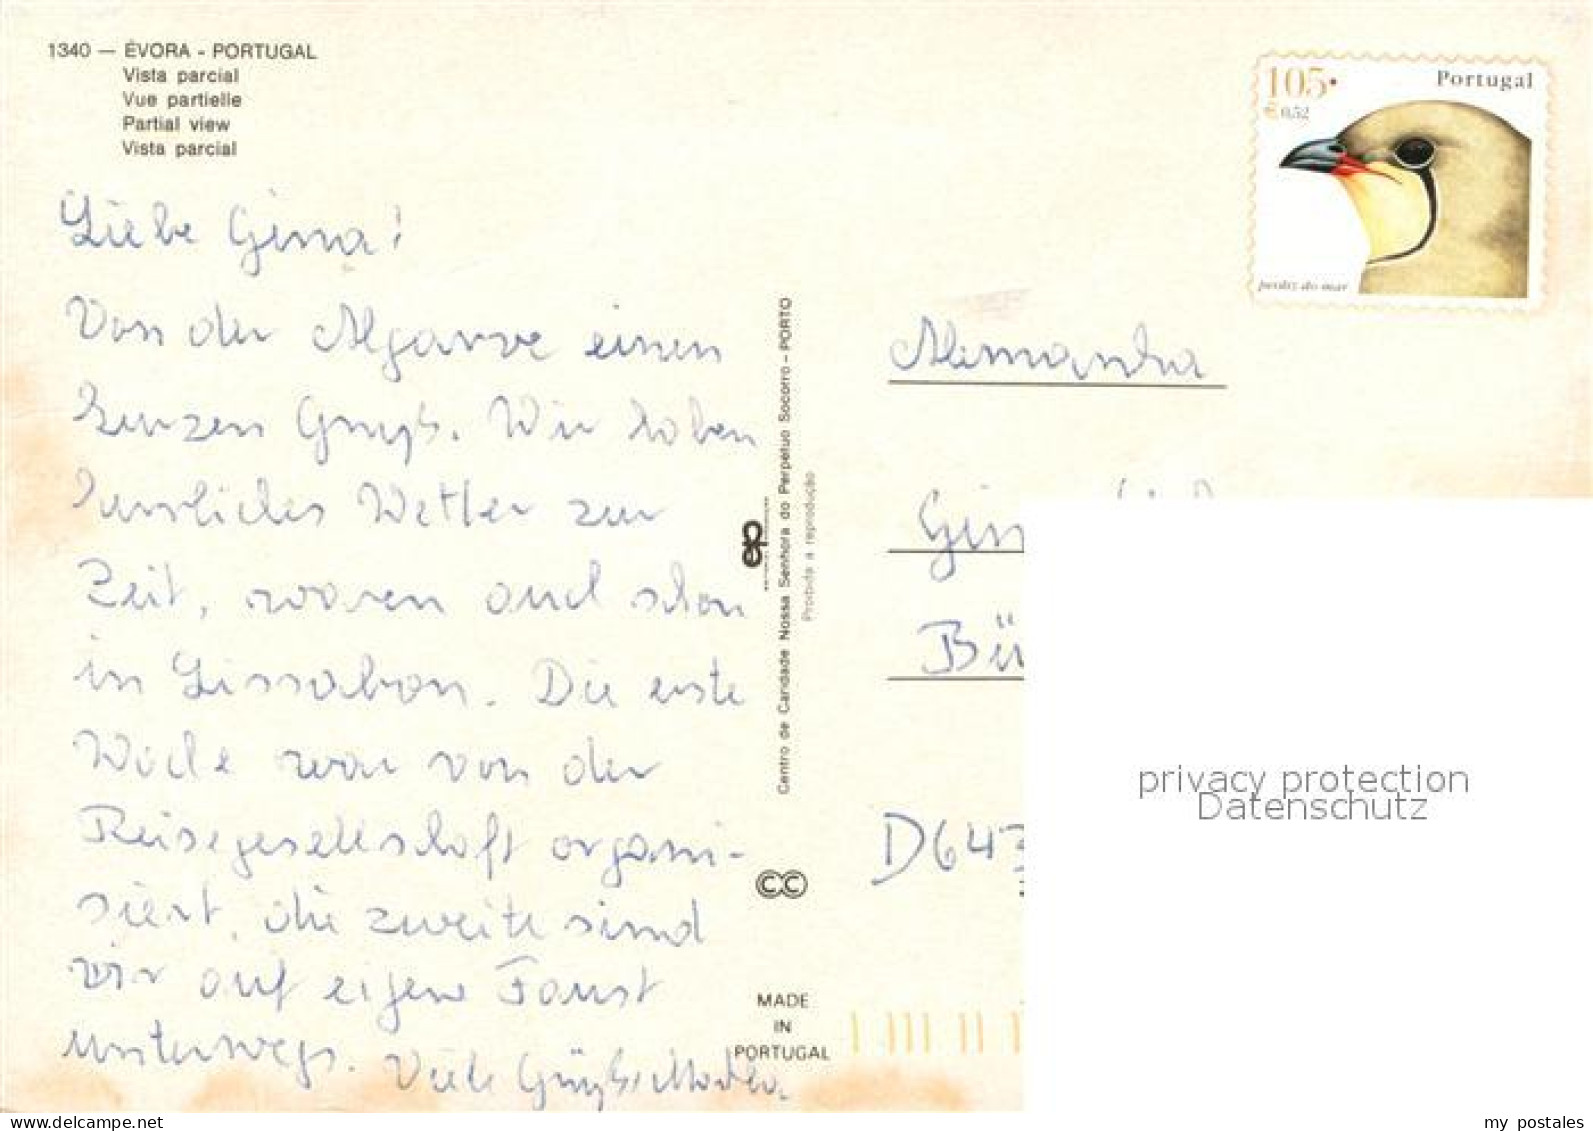 1340 — ÉVORA - PORTUGAL
Vista parcial
Vue partielle
Partial view
Vista parcial
Liebe Gina!
Von der Algarve einen
kurzen Gruß. Wir haben
herrliches Wetter zur
Zeit, waren auch schon
in Lissabon. Die erste
Woche war von der
Reisegesellschaft organi-
siert, die zweite sind
wir auf eigene Faust
unterwegs. Viele Grüße
Centro de Caridade Nossa Senhora do Perpétuo Socorro - PORTO
Proibida a reprodução
ep
CC
MADE
IN
PORTUGAL
105
Portugal
€ 0,52
perdiz do mar
Alemanha
Gin
Bü
D643
privacy protection
Datenschutz
my postales